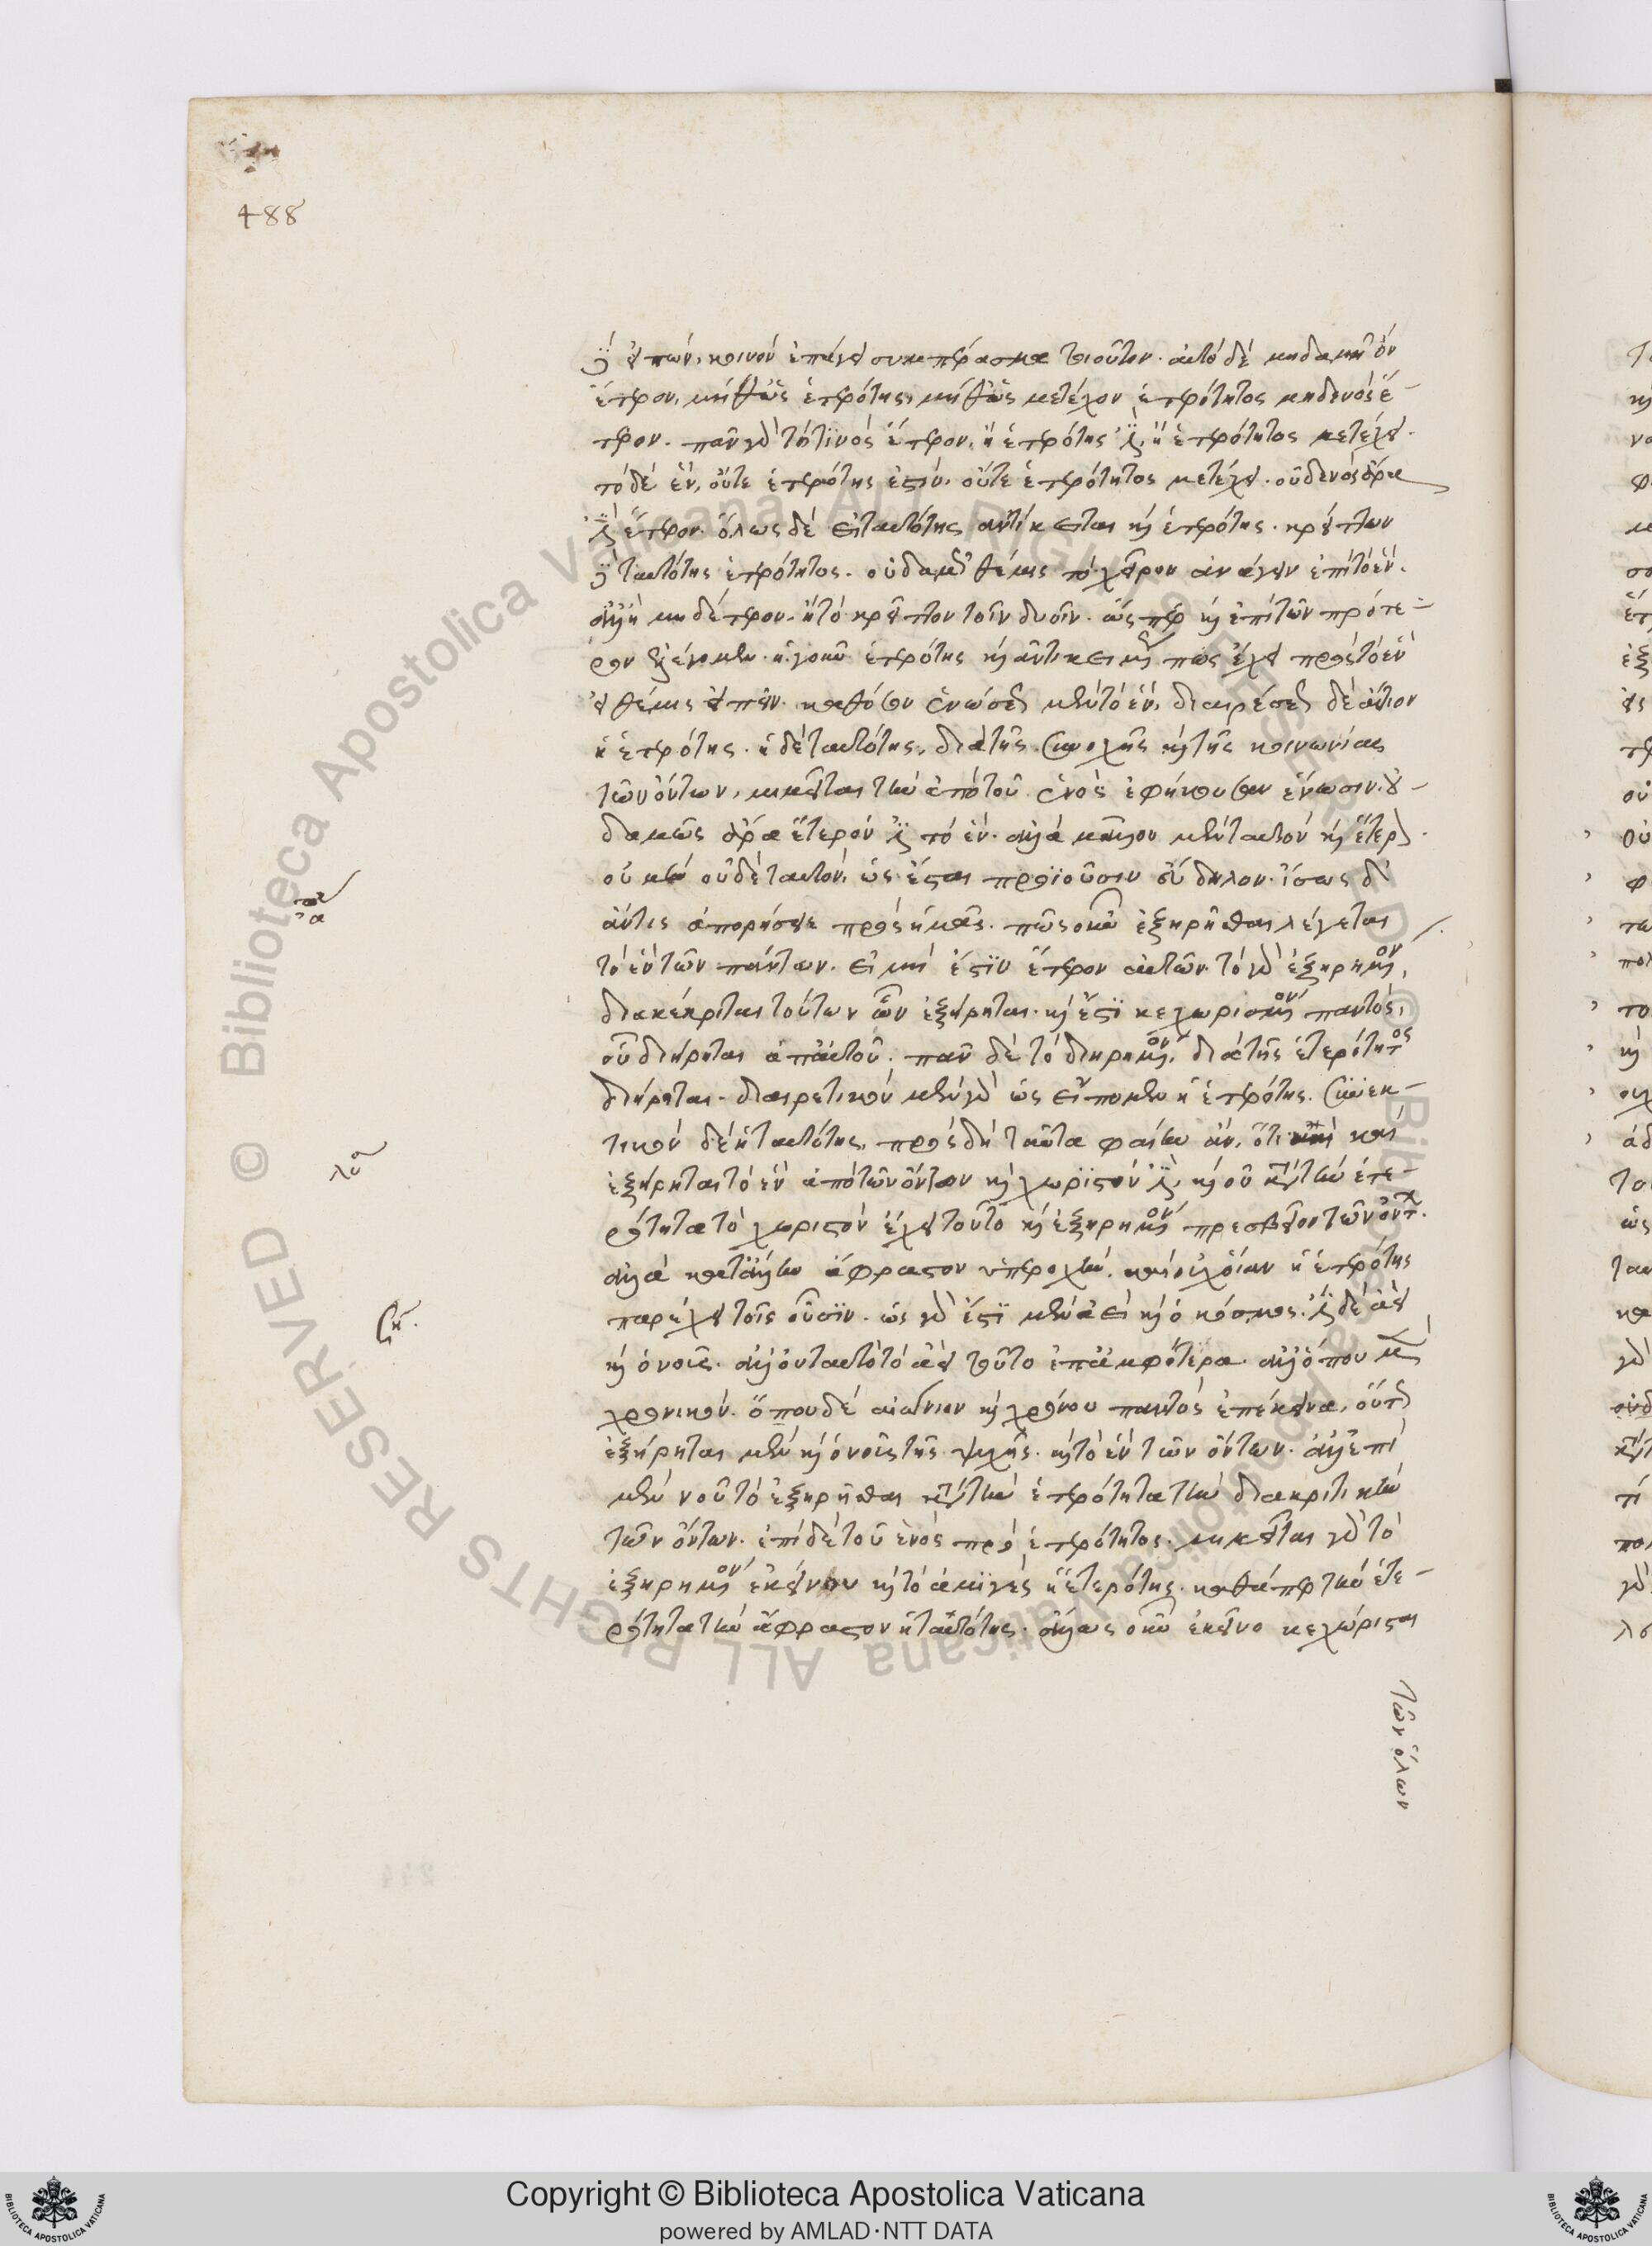 488
εἰπών, κοινὸν ἐπάγει συμπέρασμα τοιοῦτον. αὐτὸ δὲ μηδαμῆ ὂν
ἕτερον, μήθ' ὡς ἑτερότης, μήθ' ὡς μετέχον ἑτερότητος μηδενὸς ἕ-
τερον. πᾶν γὰρ τό τινος ἕτερον, ἢ ἑτερότης ἐστὶν, ἢ ἑτερότητος μετέχει.
τὸ δὲ ἓν, οὔτε ἑτερότης ἐστίν, οὔτε ἑτερότητος μετέχει. οὐδενὸς ἄρα
ἐστὶν ἕτερον. ὅλως δὲ εἰ ταυτότης ἀντίκειται καὶ ἑτερότης. κρείττων
δὲ ταυτότης ἑτερότητος. οὐδαμοῦ θέμις τὸ χεῖρον ἀνάγειν ἐπὶ τὸ ἕν.
ἀλλ' ἢ μηδέτερον. ἢ τὸ κρεῖττον τοῖν δυοῖν. ὥσπερ καὶ ἐπὶ τῶν πρότε-
ρον ἐλέγομεν. ἡ γοῦν ἑτερότης καὶ ἀντικειμένως πως ἔχει πρὸς τὸ ἓν
εἰ θέμις εἰπεῖν. καθόσον ἑνώσεως μὲν τὸ ἕν, διαιρέσεως δὲ αἴτιον
ἡ ἑτερότης. ἡ δὲ ταυτότης, διὰ τῆς συνοχῆς καὶ τῆς κοινωνίας
τῶν ὄντων, μιμεῖται τὴν ἀπὸ τοῦ ἑνὸς ἐφήκουσαν ἕνωσιν. οὐ-
δαμῶς ἄρα ἕτερόν ἐστι τὸ ἕν. ἀλλὰ μᾶλλον μὲν ταυτὸν καὶ ἕτερον.
οὐ μὴν οὐδὲ ταυτόν, ὡς ἔσται προϊοῦσιν εὔδηλον. ἴσως δ'
ἄν τις ἀπορήσειε πρὸς ἡμᾶς. πῶς οὖν ἐξηρῆσθαι λέγεται
τὸ ἓν τῶν πάντων. εἰ μή ἐστιν ἕτερον αὐτῶν. τὸ γὰρ ἐξηρημένον,
διακέκριται τούτων ὧν ἐξῄρηται. καὶ ἔστι κεχωρισμένον παντός,
οὗ διῄρηται ἀπ' αὐτοῦ. πᾶν δὲ τὸ διῃρημένον, διὰ τῆς ἑτερότητος
διῄρηται. διαιρετικὸν μὲν γὰρ ὡς εἴπομεν ἡ ἑτερότης. συνεκ-
τικὸν δὲ ἡ ταυτότης. πρὸς δὴ ταῦτα φαίην ἄν, ὅτι καὶ
ἐξῄρηται τὸ ἓν ἀπὸ τῶν ὄντων καὶ χωριστόν ἐστι, καὶ οὐ κατὰ τὴν ἑτε-
ρότητα τὸ χωριστὸν ἔχει τοῦτο καὶ ἐξηρημένον πρεσβεῖον τῶν ὄντων.
ἀλλὰ κατ' ἄλλην ἄφραστον ὑπεροχὴν. καὶ οὐχ οἵαν ἡ ἑτερότης
παρέχει τοῖς οὖσιν. ὡς γὰρ ἔστι μὲν ἀεὶ καὶ ὁ κόσμος. ἔστι δὲ ἀεὶ
καὶ ὁ νοῦς. ἀλλ' οὐ ταυτὸ τὸ ἀεὶ τοῦτο ἐπ' ἀμφότερα. ἀλλ' ὅπου μὲν
χρονικόν. ὅπου δὲ αἰώνιον καὶ χρόνου παντὸς ἐπέκεινα, οὕτως
ἐξῄρηται μὲν καὶ ὁ νοῦς τῆς ψυχῆς. καὶ τὸ ἓν τῶν ὄντων. ἀλλ' ἐπὶ
μὲν νοῦ τὸ ἐξηρῆσθαι κατὰ τὴν ἑτερότητα τὴν διακριτικὴν
τῶν ὄντων. ἐπὶ δὲ τοῦ ἑνὸς πρὸ ἑτερότητος. μιμεῖται γὰρ τὸ
ἐξηρημένον ἐκείνου καὶ τὸ ἀμιγὲς ἡ ἑτερότης. καθάπερ τὴν ἑτε-
ρότητα τὴν ἄφραστον ἡ ταυτότης. ἄλλως οὖν ἐκεῖνο κεχώρισται
τῶν ὅλων
Copyright © Biblioteca Apostolica Vaticana
powered by AMLAD·NTT DATA